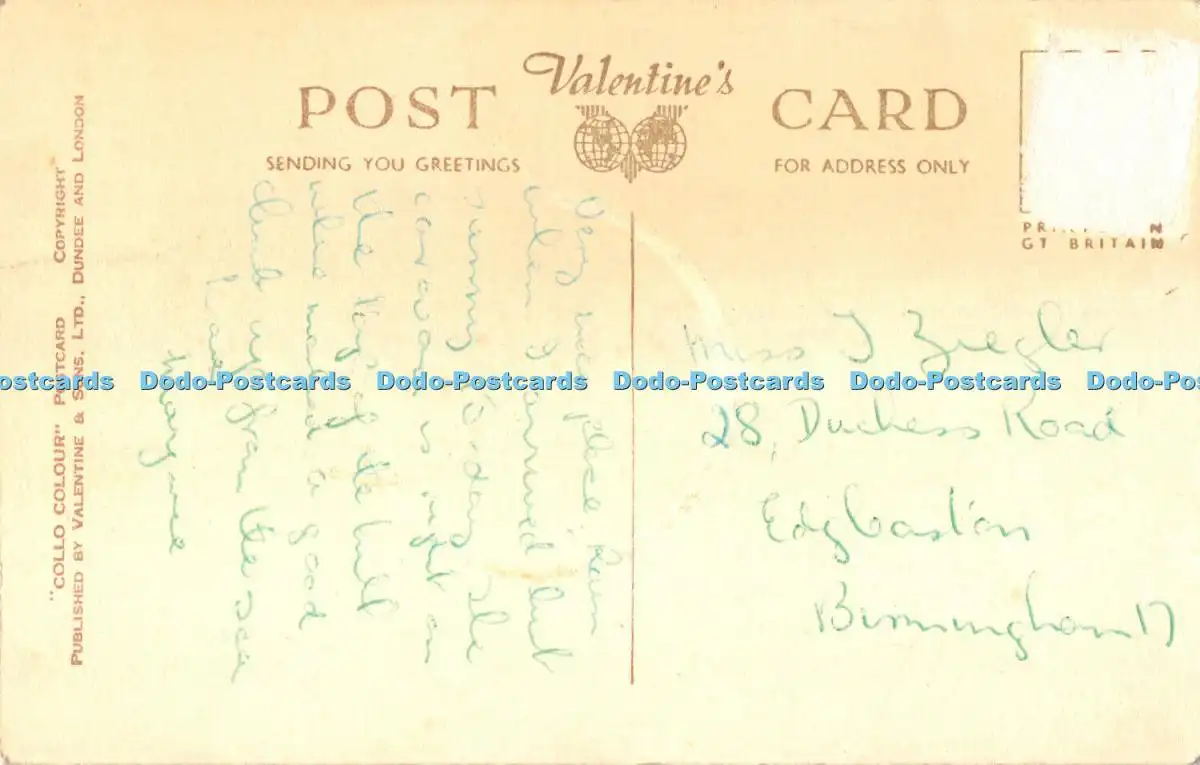 Valentine's
POST CARD
SENDING YOU GREETINGS
FOR ADDRESS ONLY
GT BRITAIN
"COLLO COLOUR" POSTCARD COPYRIGHT
PUBLISHED BY VALENTINE & SONS. LTD., DUNDEE AND LONDON
Very nice place. Rain
when I arrived but
sunny to-day. The
caravan is right on
the top of the hill
which makes a good
climb up from the sea
Love
Miss J Ziegler
28, Duchess Road
Edgbaston
Birmingham 17
Dodo-Postcards Dodo-Postcards Dodo-Postcards Dodo-Postcards